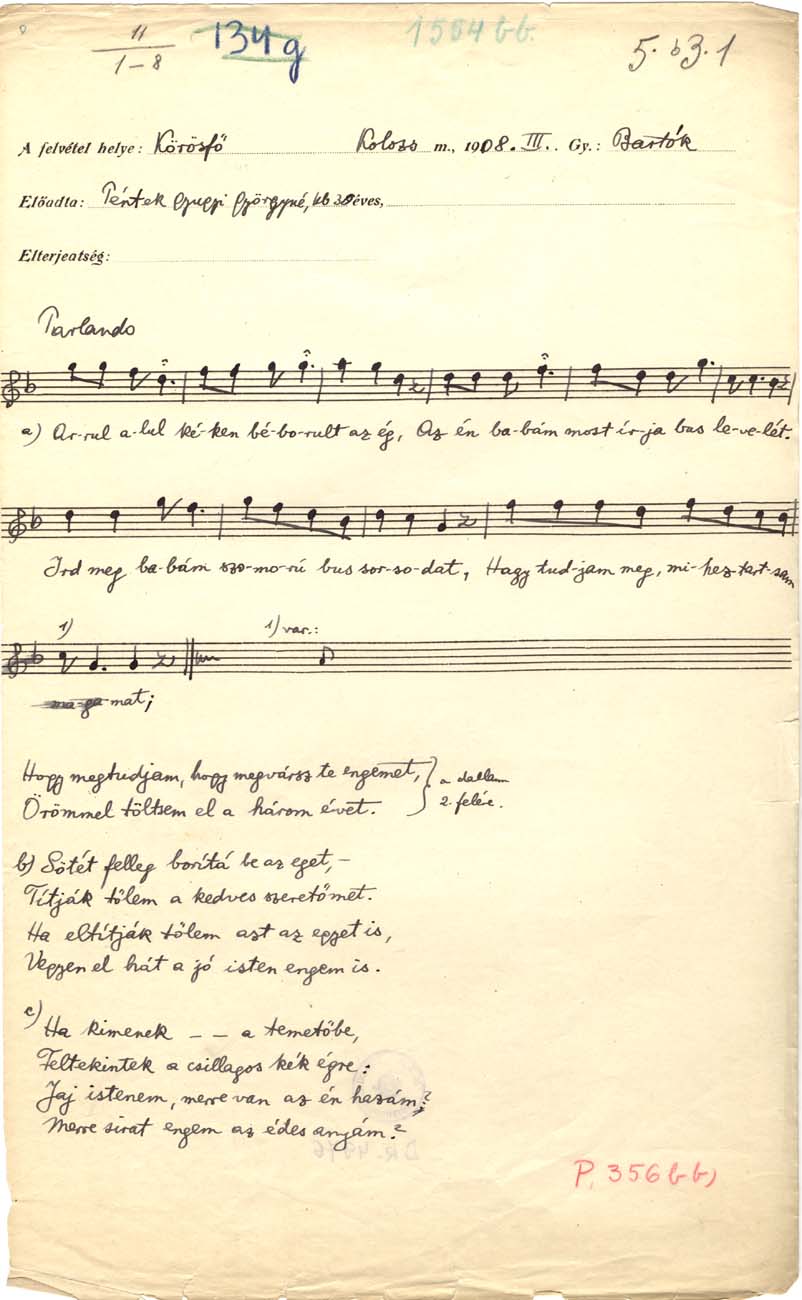 11
1–8
134g
1564 bb.
5. b3. 1
A felvétel helye: Körösfő Kolozs m., 1908. III. . Gy.: Bartók
Előadta: Péntek Gyugyi Györgyné, kb 30 éves,
Elterjedtség:
Parlando
a) Ar-rul a-lul ké-ken bé-bo-rult az ég, Az én ba-bám most ír-ja bus le-ve-lét.
Ird meg ba-bám szo-mo-rú bus sor-so-dat, Hagy tud-jam meg, mi-hez tart-sam
1) 1) var.:
ma-ga-mat;
Hogy megtudjam, hogy megvársz te engemet, a dallam
Örömmel töltsem el a három évet. 2. felére.
b) Sötét felleg borítá be az eget, –
Títják tőlem a kedves szeretőmet.
Ha eltítják tőlem azt az egyet is,
Vegyen el hát a jó isten engem is.
c) Ha kimenek – – a temetőbe,
Feltekintek a csillagos kék égre:
Jaj istenem, merre van az én hazám?
Merre sirat engem az édes anyám?
P. 356 bb)